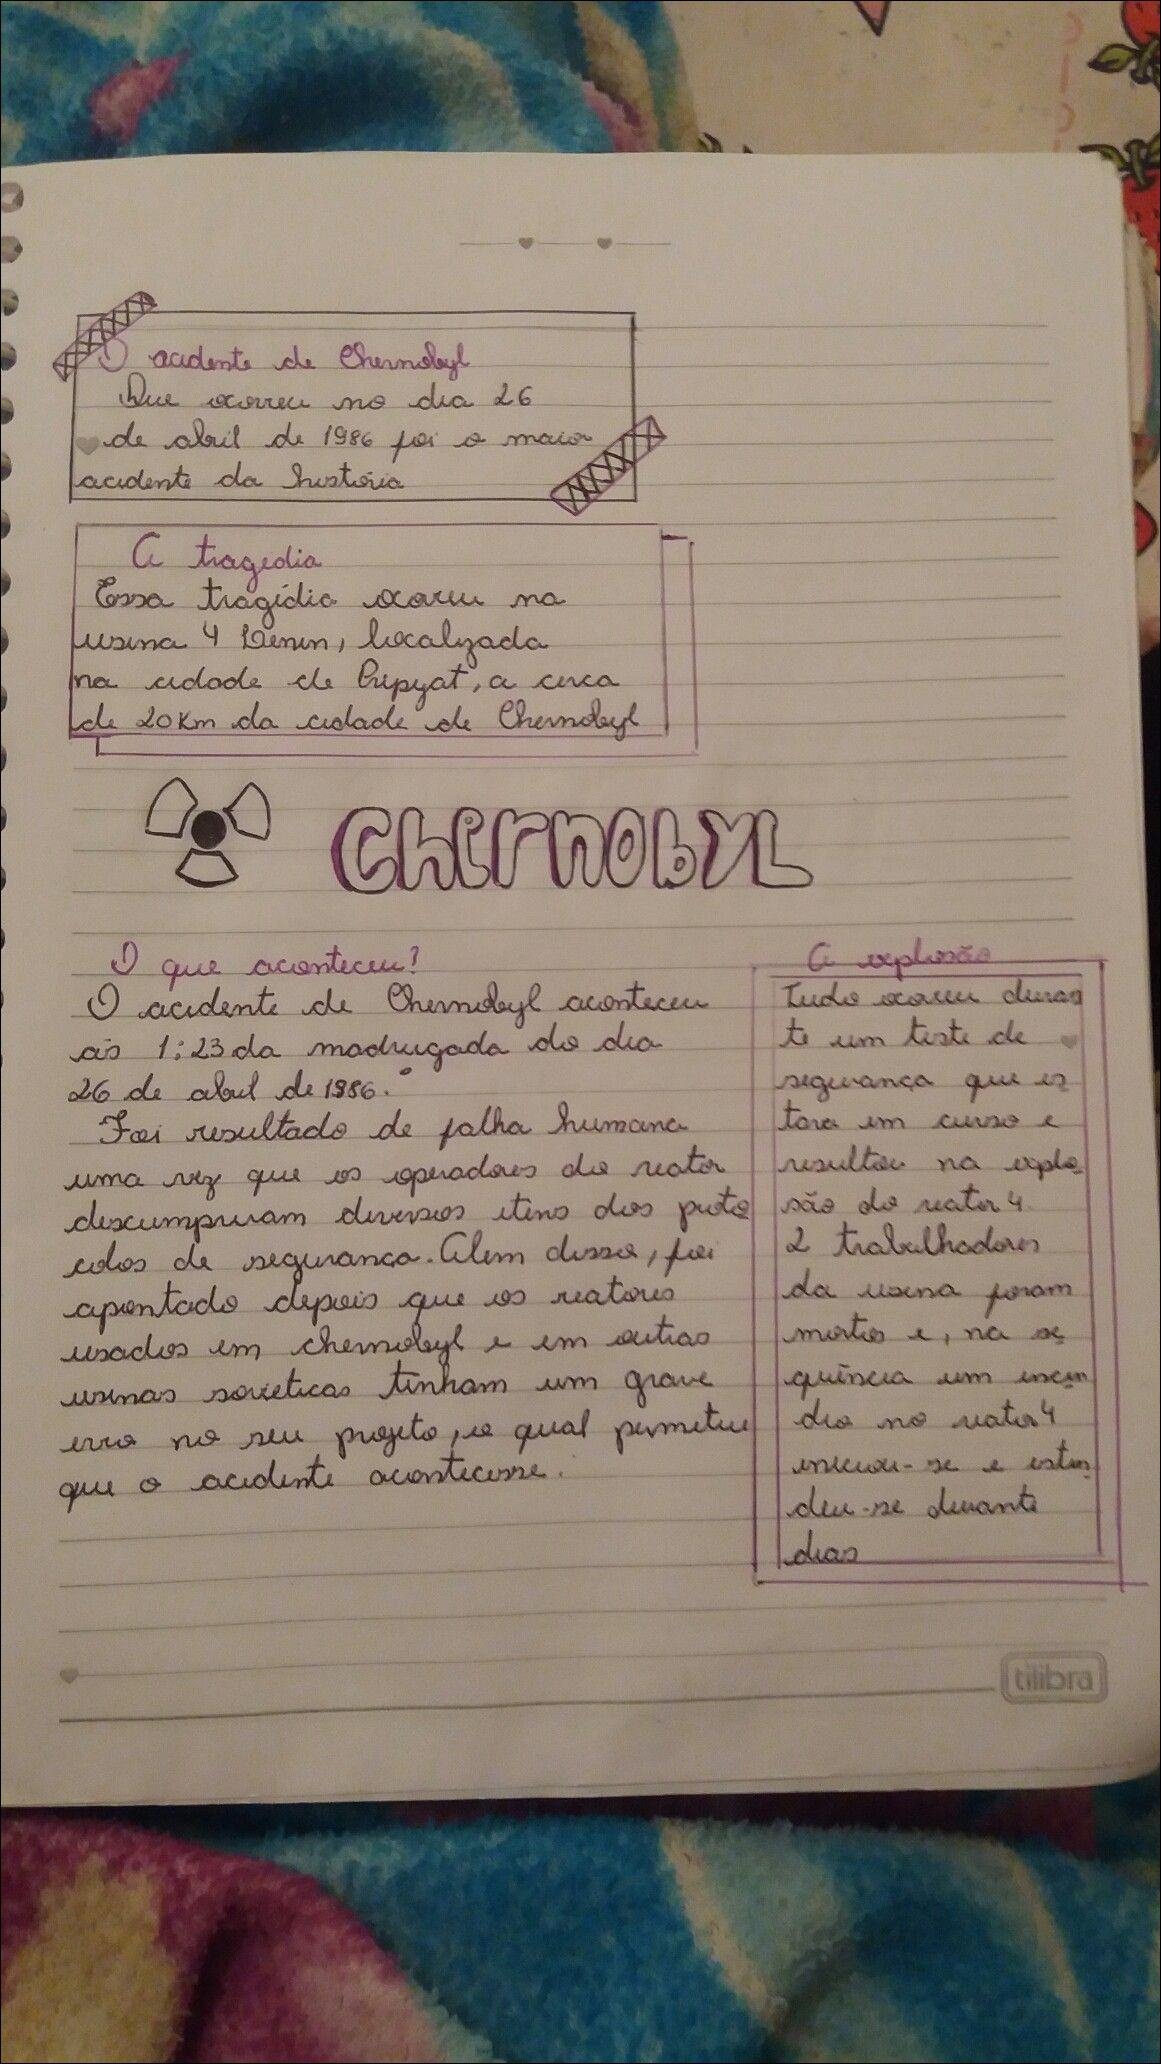 O acidente de Chernobyl
Que ocorreu no dia 26
de abril de 1986 foi o maior
acidente da história
A tragedia
Essa tragédia ocorreu na
usina 4 Lenin, localizada
na cidade de Pripyat, a cerca
de 20Km da cidade de Chernobyl
Chernobyl
O que aconteceu?
O acidente de Chernobyl aconteceu
ás 1:23 da madrugada do dia
26 de abril de 1986.
Foi resultado de falha humana
uma vez que os operadores do reator
descumpriram diversos itens dos proto
colos de segurança. Alem disso, foi
apontado depois que os reatores
usados em chernobyl e em outras
usinas sovieticas tinham um grave
erro no seu projeto, o qual permitiu
que o acidente acontecesse.
A explosão
Tudo ocorreu duran
te um teste de
segurança que es
tava em curso e
resultou na explo
são do reator 4.
2 trabalhadores
da usina foram
mortos e, na se
quência um incen
dio no reator 4
iniciou-se e esten
deu-se durante
dias
tilibra